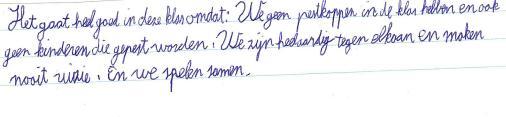 Het gaat heel goed in deze klas omdat: We geen pestkoppen in de klas hebben en ook
geen kinderen die gepest worden. We zijn heel aardig tegen elkaar en maken
nooit ruzie. En we spelen samen.